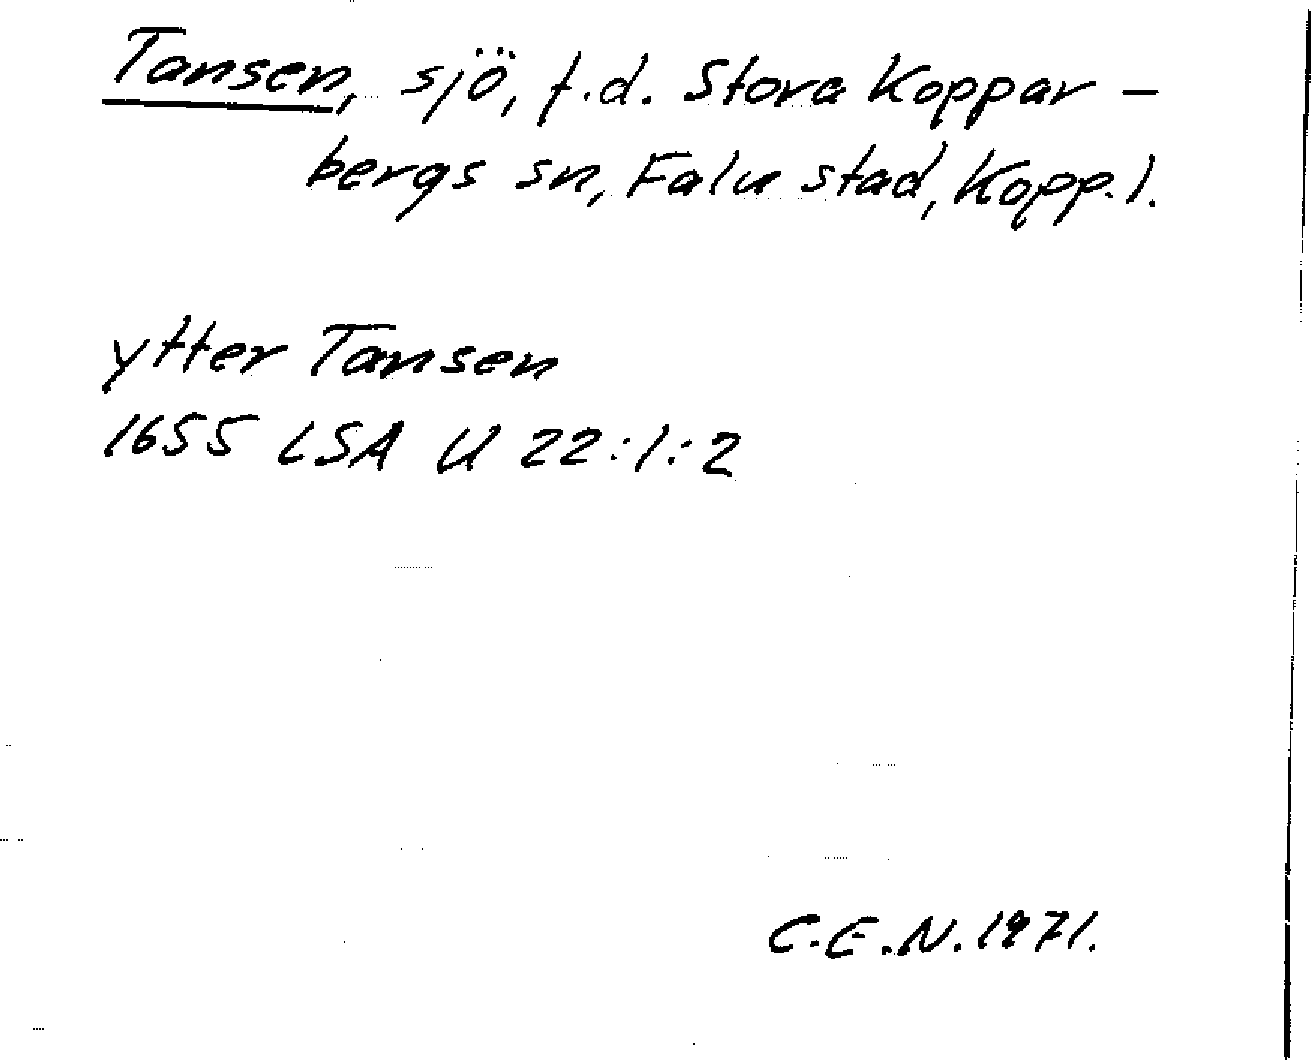 Tansen, sjö, f.d. Stora Koppar-
bergs sn, Falu stad, Kopp.l.
ytter Tansen
1655 LSA U 22:1:2
C.E.N. 1971.